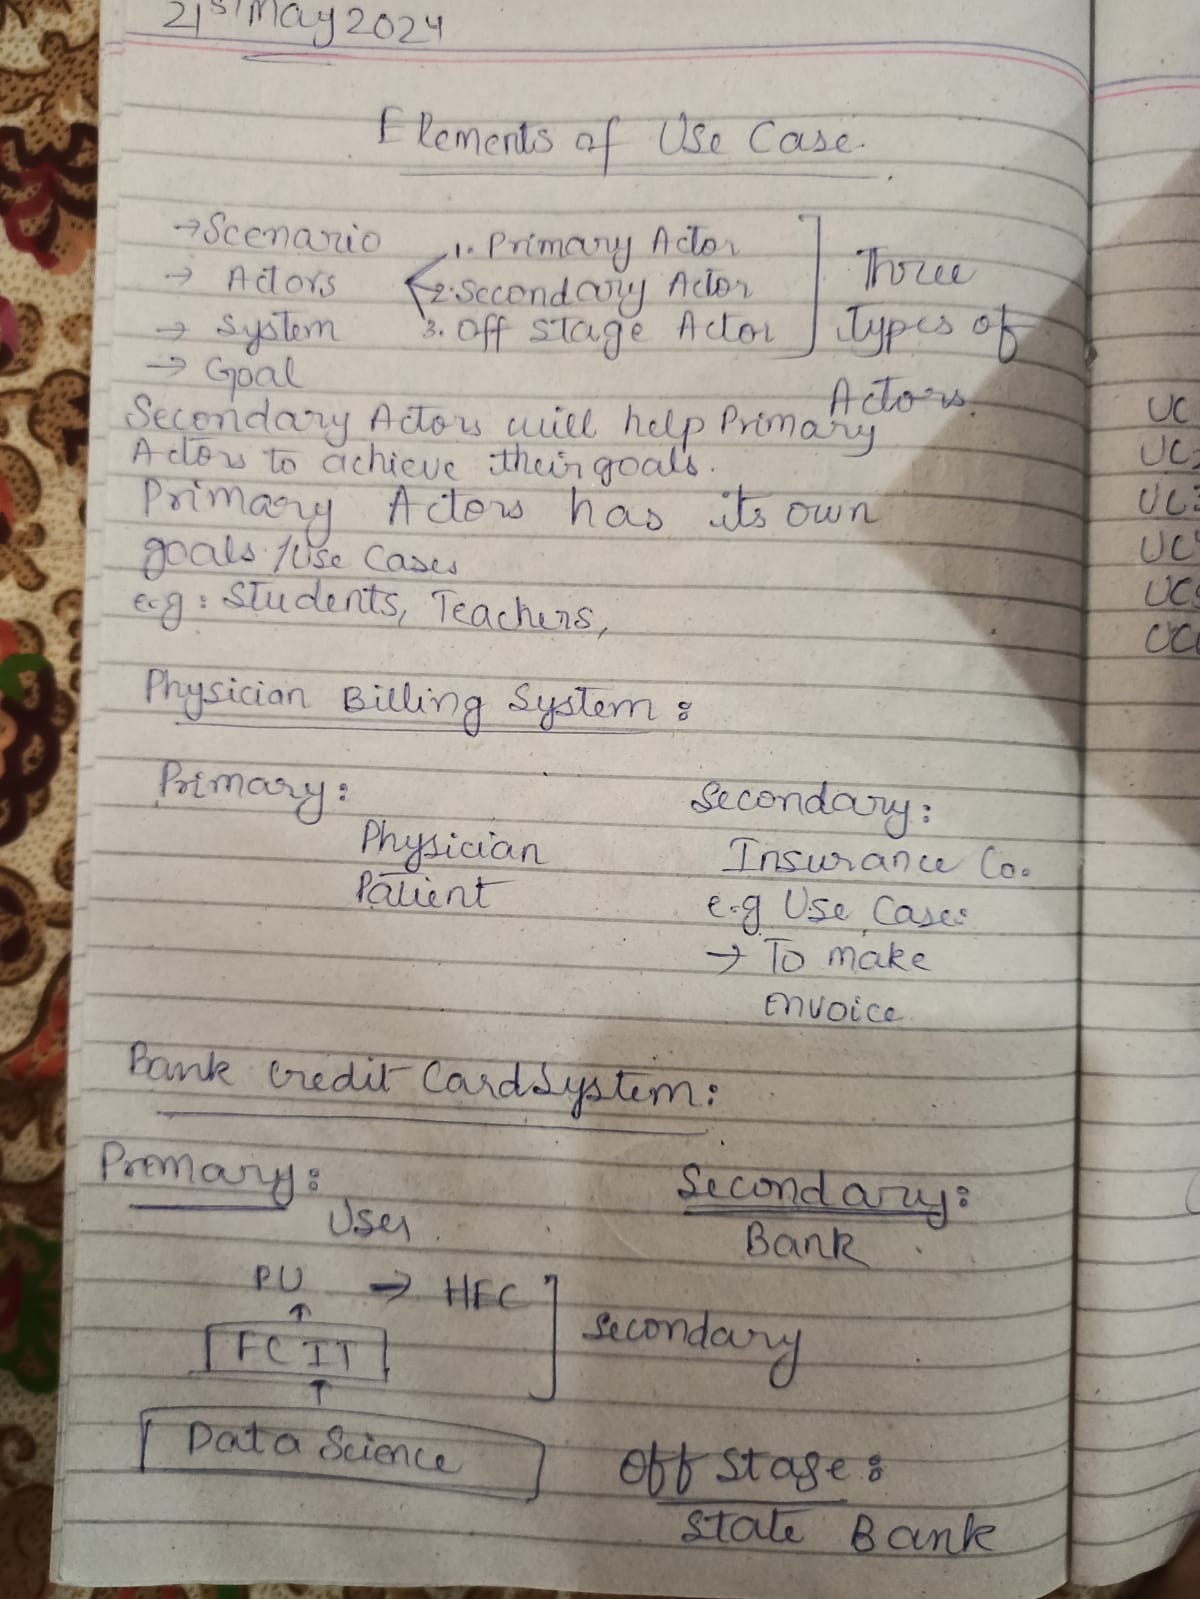 21st May 2024
Elements of Use Case.
→ Scenario
→ Actors
→ System
→ Goal
1. Primary Actor
2. Secondary Actor
3. Off Stage Actor
Three
Types of
Actors.
Secondary Actors will help Primary
Actors to achieve their goals.
Primary Actors has its own
goals / Use Cases
e.g: Students, Teachers,
Physician Billing System:
Primary:
Physician
Patient
Secondary:
Insurance Co.
e.g Use Case:
→ To make
envoice
Bank Credit Card System:
Primary:
User
Secondary:
Bank
PU → HEC
↑
FCIT
↑
Data Science
Secondary
Off Stage:
State Bank
UC
UC
UC
UC
UC
UC